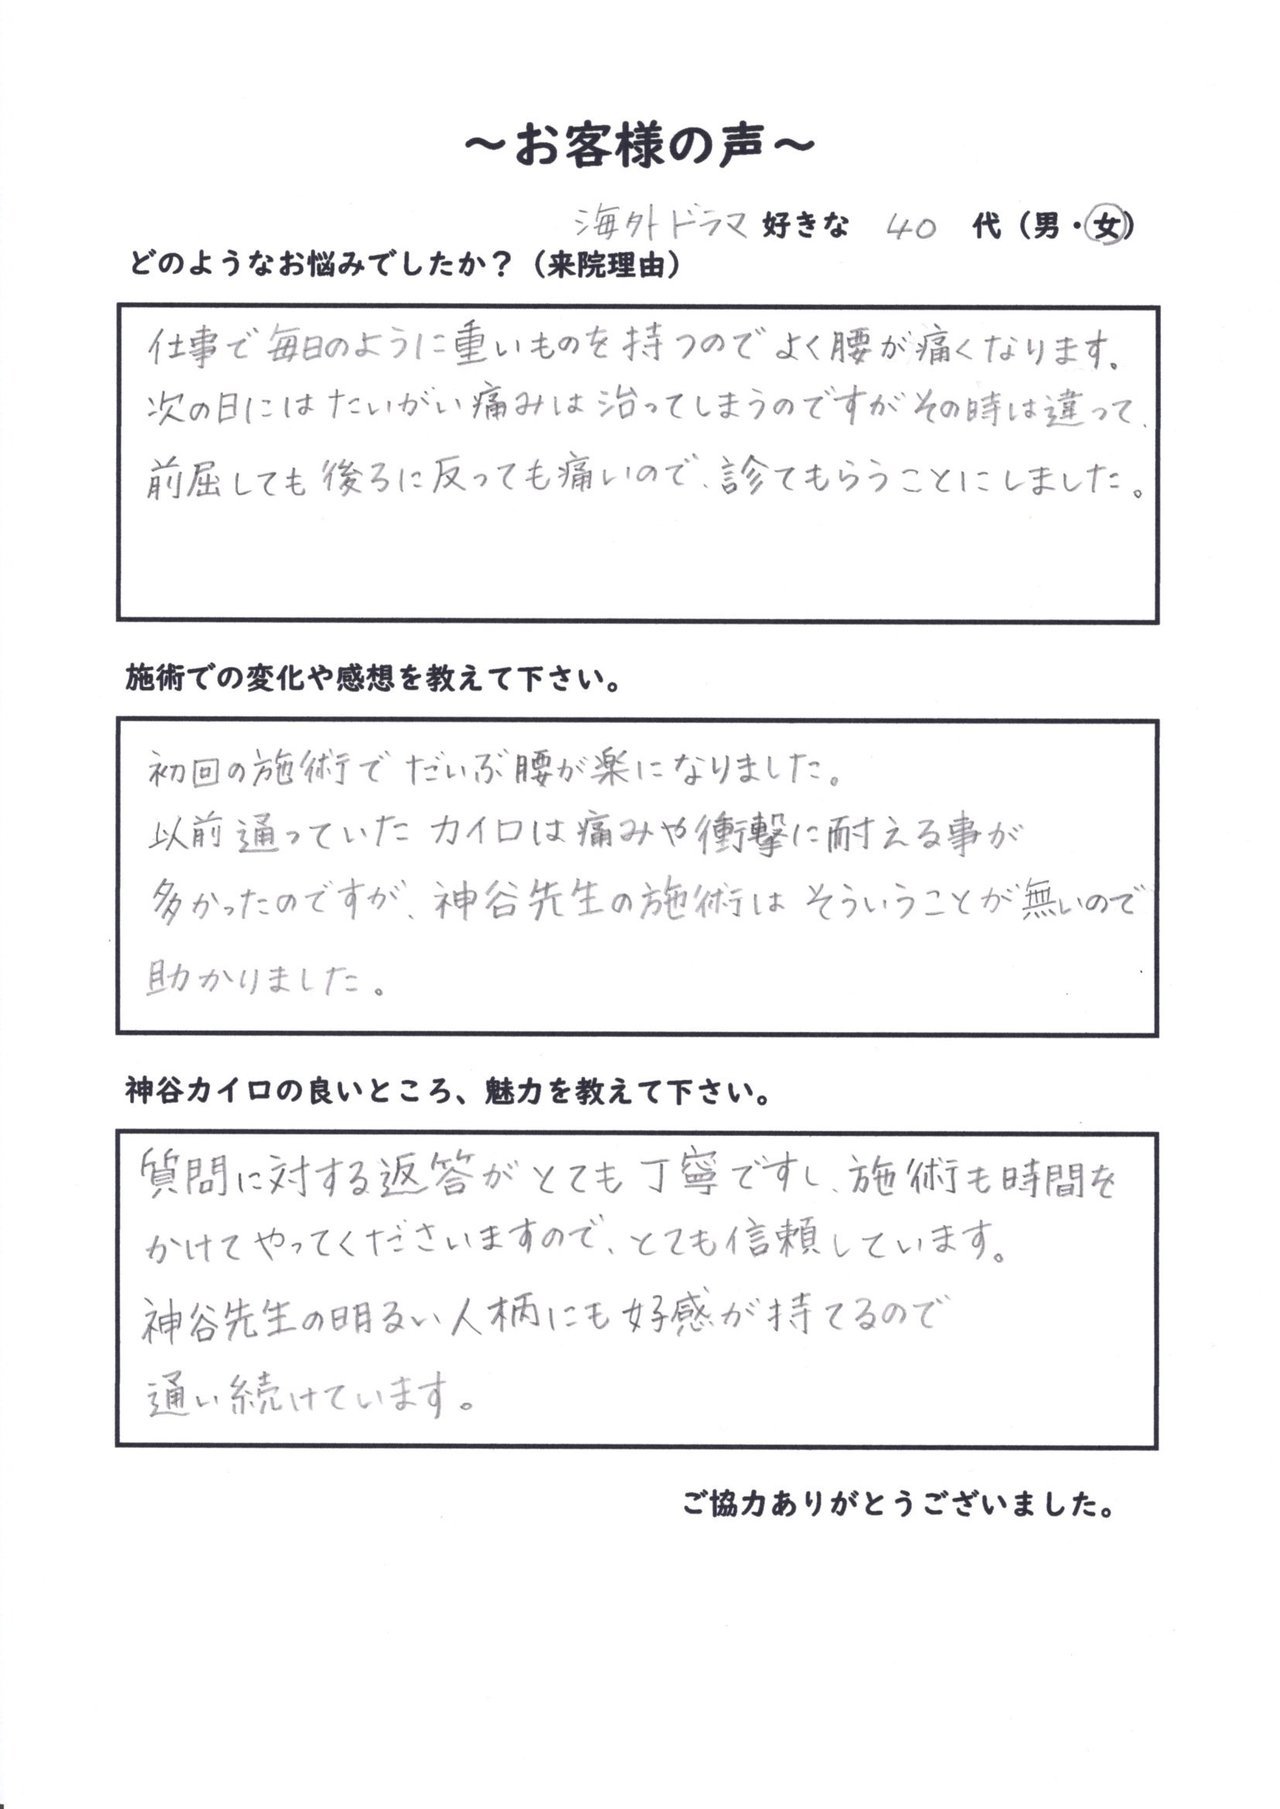 ～お客様の声～
海外ドラマ 好きな 40 代（男・女）
どのようなお悩みでしたか？（来院理由）
仕事で毎日のように重いものを持つのでよく腰が痛くなります。
次の日にはたいがい痛みは治ってしまうのですがその時は違って、
前屈しても後ろに反っても痛いので、診てもらうことにしました。
施術での変化や感想を教えて下さい。
初回の施術でだいぶ腰が楽になりました。
以前通っていたカイロは痛みや衝撃に耐える事が
多かったのですが、神谷先生の施術はそういうことが無いので
助かりました。
神谷カイロの良いところ、魅力を教えて下さい。
質問に対する返答がとても丁寧ですし、施術も時間を
かけてやってくださいますので、とても信頼しています。
神谷先生の明るい人柄にも好感が持てるので
通い続けています。
ご協力ありがとうございました。